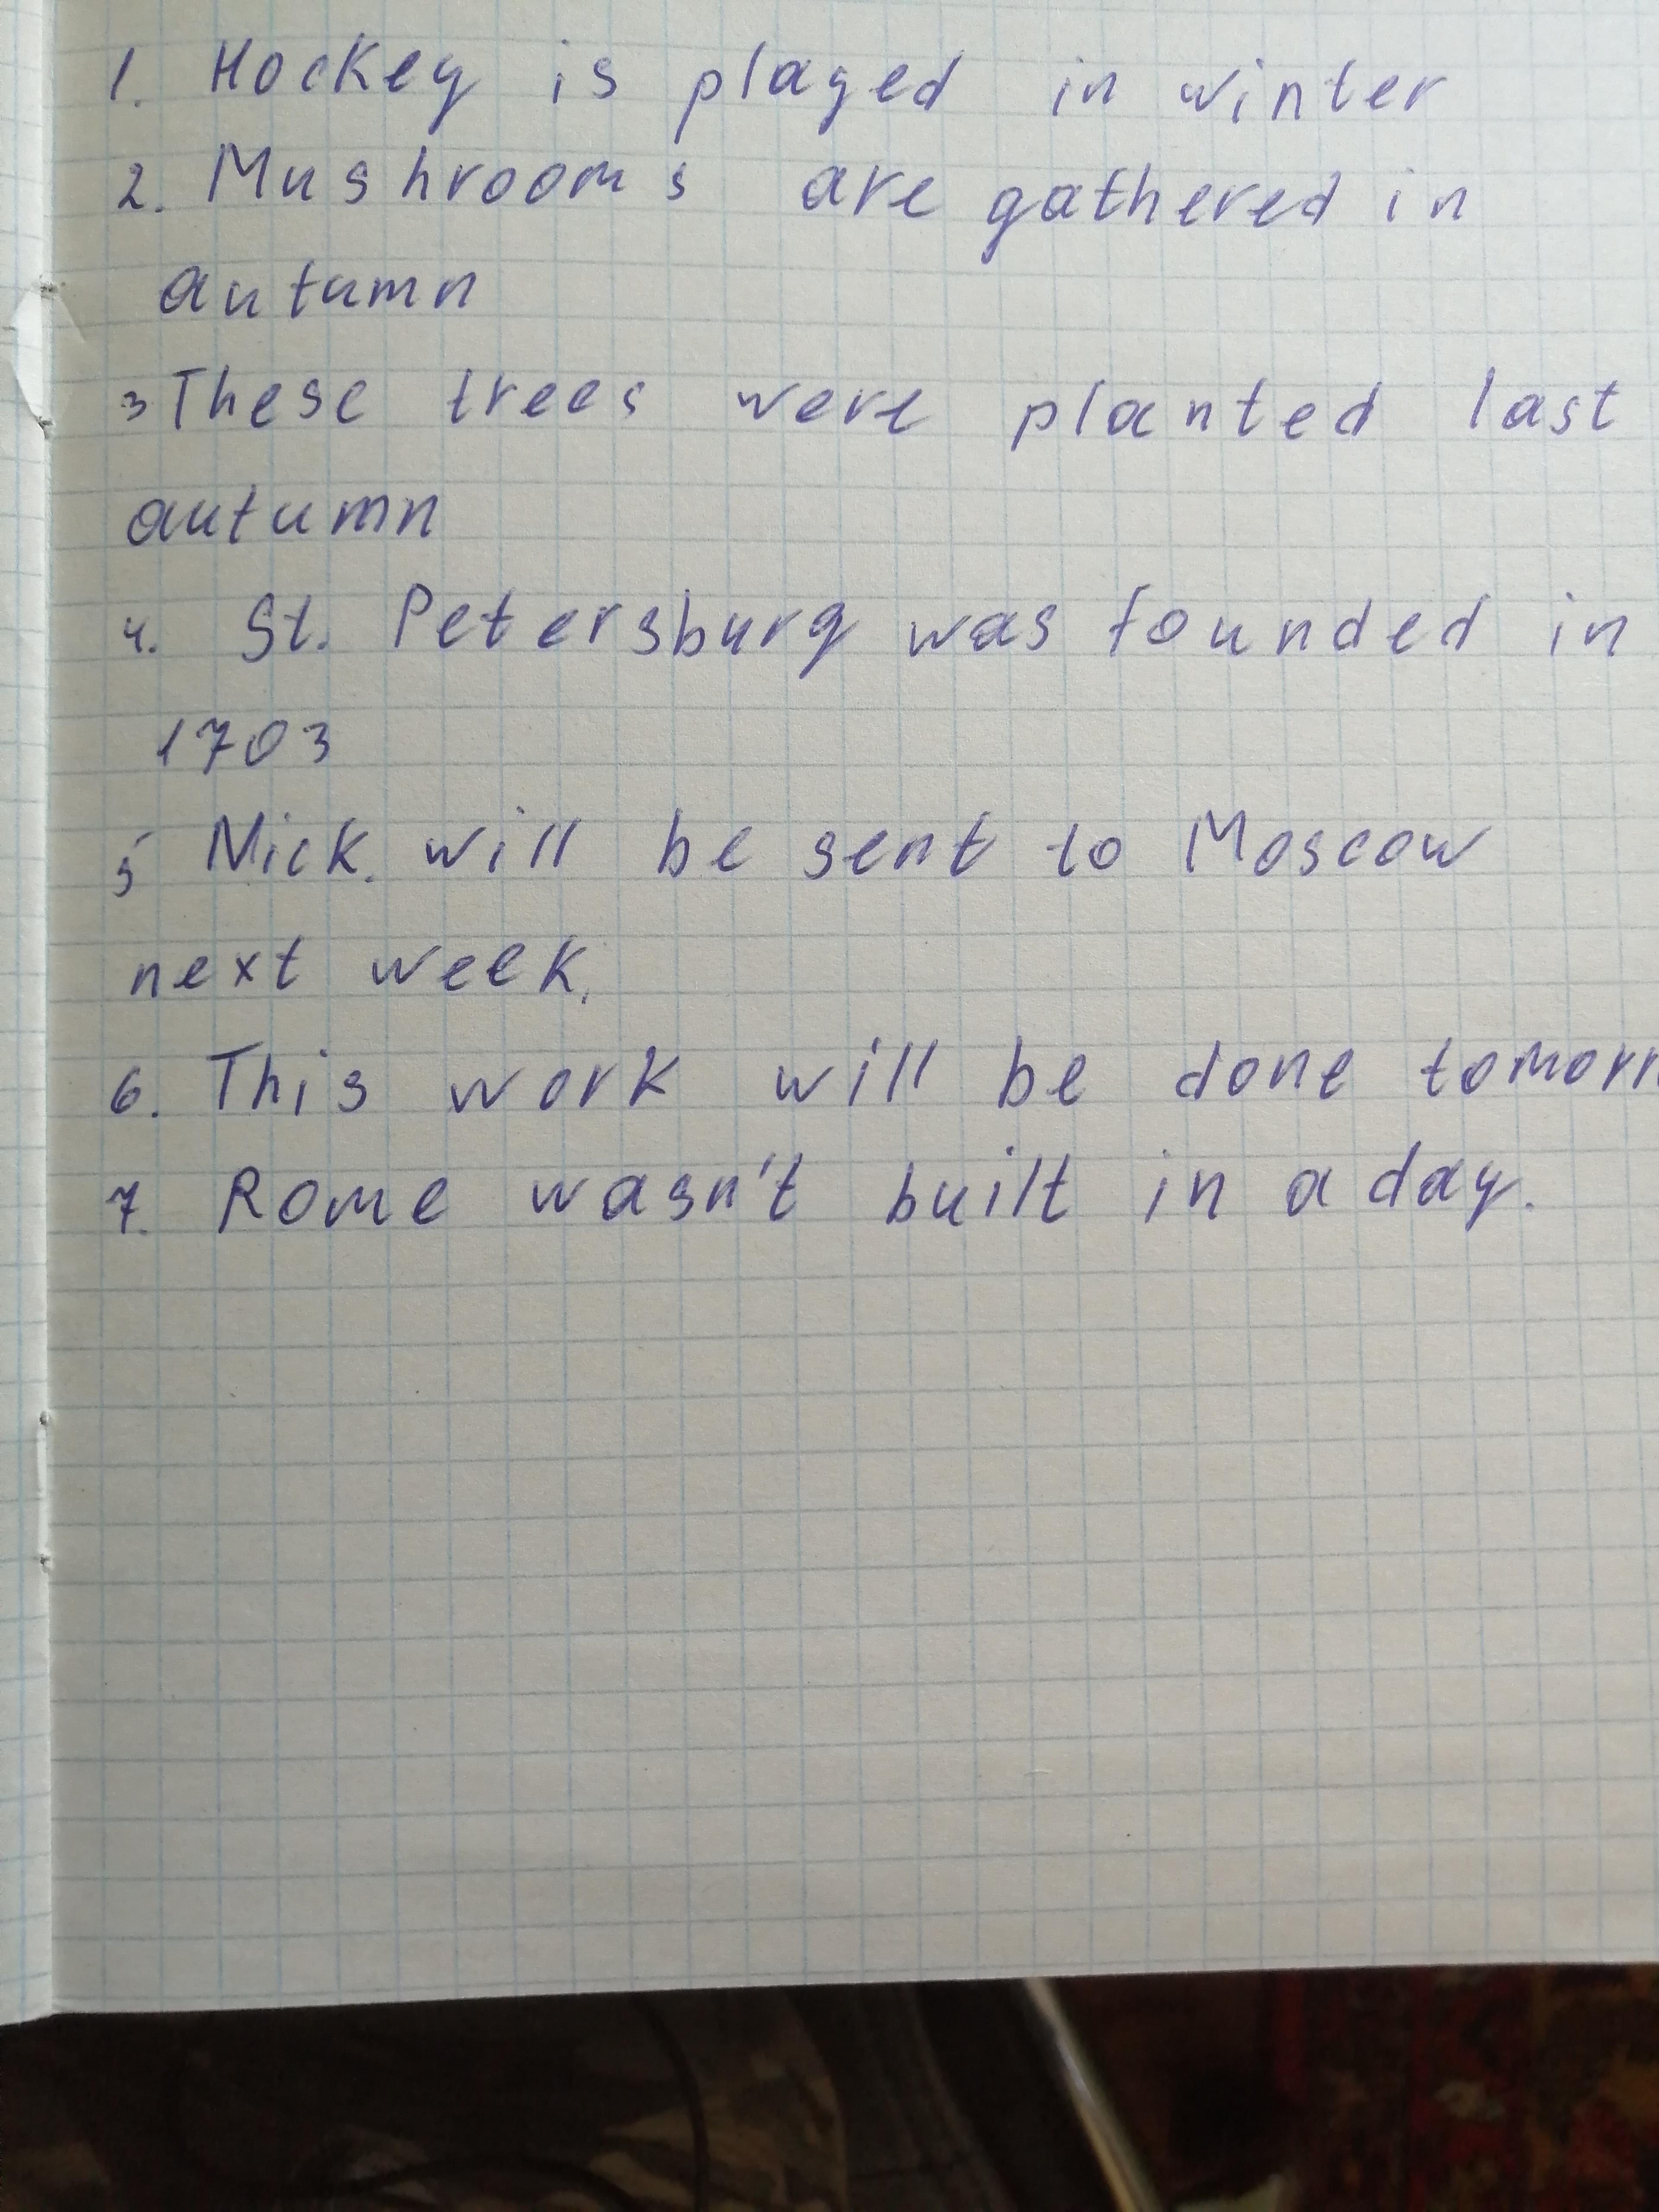 1. Hockey is played in winter
2. Mushrooms are gathered in
autumn
3 These trees were planted last
autumn
4. St. Petersburg was founded in
1703
5 Nick. will be sent to Moscow
next week.
6. This work will be done tomorr
7. Rome wasn't built in a day.